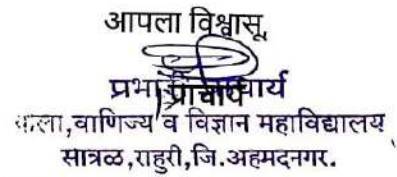 आपला विश्वासू,
प्रभारी प्राचार्य
प्राचार्य
कला,वाणिज्य व विज्ञान महाविद्यालय
सात्रळ,राहुरी,जि.अहमदनगर.